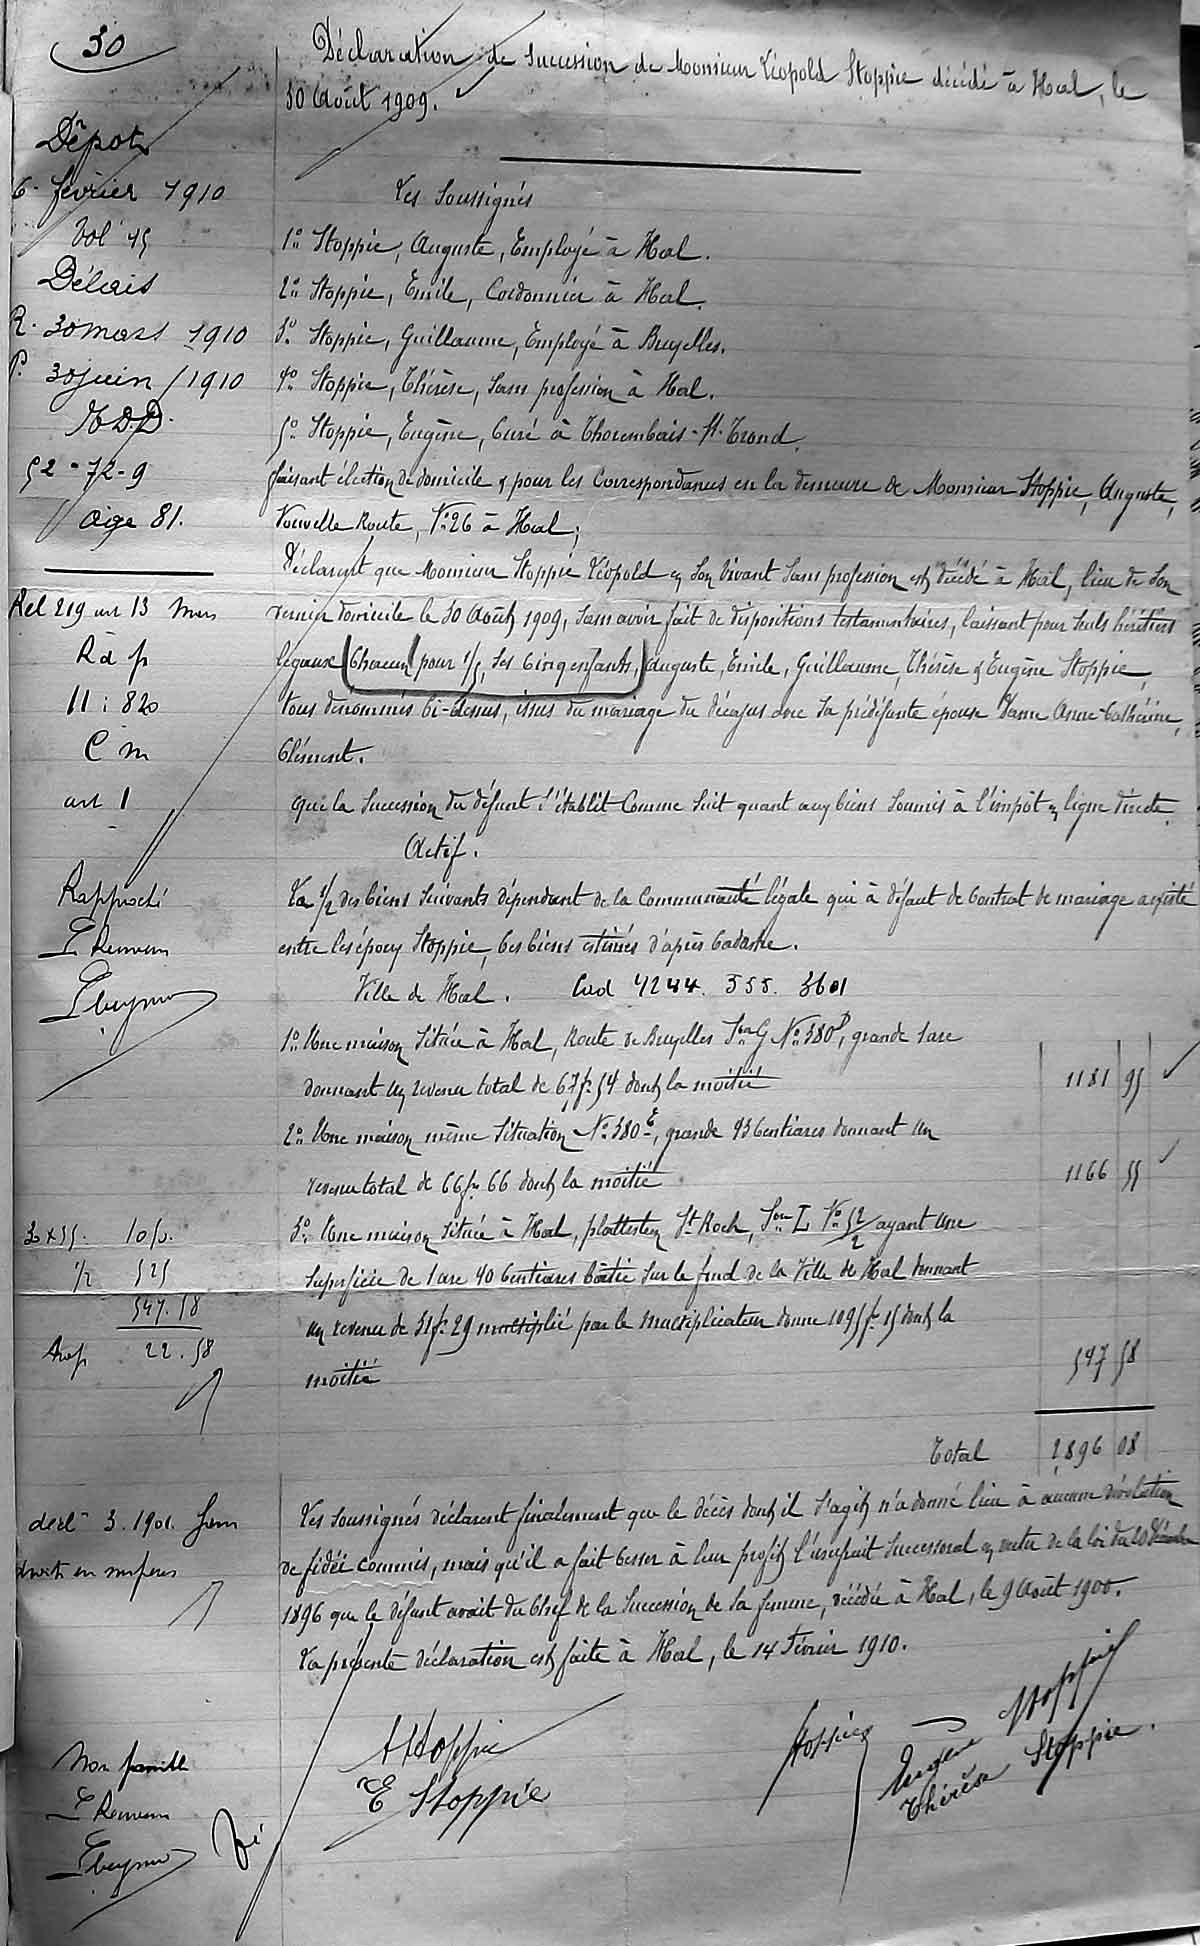 30
Déclaration de Succession de Monsieur Léopold Stoppie décédé à Hal, le
30 Août 1909.
Dépot
6. février 1910
Vol 45
Délais
R. 30 mars 1910
P. 30 juin 1910
52-72-9
age 81.
Les Soussignés
1º Stoppie, Auguste, Employé à Hal.
2º Stoppie, Emile, Cordonnier à Hal.
3º Stoppie, Guillaume, Employé à Bruxelles.
4º Stoppie, Thérèse, Sans profession à Hal.
5º Stoppie, Eugène, Curé à Thorembais-St-Trond.
faisant élection de domicile & pour les Correspondances en la demeure de Monsieur Stoppie, Auguste,
Nouvelle Route, Nº 26 à Hal;
Déclarent que Monsieur Stoppie Léopold en Son Vivant Sans profession est décédé à Hal, lieu de Son
dernier domicile le 30 Août 1909, Sans avoir fait de dispositions testamentaires, laissant pour Seuls héritiers
légaux Chacun pour 1/5, Ses Cinq enfants, Auguste, Emile, Guillaume, Thérèse & Eugène Stoppie,
tous dénommés Ci-dessus, issus du mariage du décujus avec Sa prédéfunte épouse Dame Anne-Cathérine,
Clément.
que la Succession du défunt S'établit Comme Suit quant aux biens Soumis à l'impôt en ligne directe.
Rel 219 art 13
R à p
11:820
C m
art 1
Actif.
La 1/2 des biens Suivants dépendant de la Communauté légale qui à défaut de Contrat de mariage a existé
entre les époux Stoppie, Ces biens estimés d'après Cadastre.
Rapproché
Ville de Hal. Cad 4244. 555. 3601
1º Une maison Située à Hal, Route de Bruxelles Son G Nº 380P, grande 1 are
donnant un revenu total de 67 fr 54 dont la moitié 1181 95
2º Une maison même Situation Nº 380E, grande 93 Centiares donnant un
revenu total de 66 fr 66 dont la moitié 1166 55
3º Une maison Située à Hal, St Roch, Son L Nº 52/2 ayant Une
Superficie de 1 are 40 Centiares bâtie Sur le fond de la Ville de Hal donnant
un revenu de 31 fr 29 multiplié par le multiplicateur donne 1095 fr 15 dont la
moitié 547 58
1/2 525
547.58
22.58
Total 2896 08
Les Soussignés déclarent finalement que le décès dont il S'agit n'a donné lieu à aucune dévolution
de fidéi commis, mais qu'il a fait Cesser à leur profit l'usufruit Successoral en vertu de la loi du 20 Décembre
1896 que le défunt avait du Chef de la Succession de Sa femme, décédée à Hal, le 9 Août 1900.
La présente déclaration est faite à Hal, le 14 Février 1910.
A Stoppie
E Stoppie
Stoppie
Eugène Stoppie
Thérèse Stoppie.